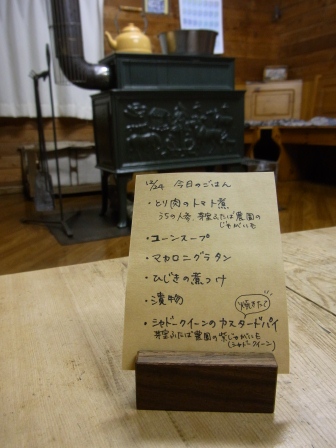 12/24 今日のごはん
・とり肉のトマト煮
うちの人参、芽室ふたば農園の
じゃがいも
・コーンスープ
・マカロニグラタン
・ひじきの煮つけ
・漬物
焼きたて
・シャドークイーンのカスタードパイ
芽室ふたば農園の紫じゃがいも
(シャドークイーン)